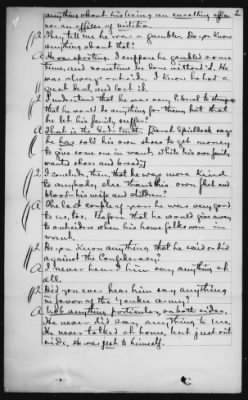 2
anything about his being an enrolling officer
nor an officer of militia.
Q They tell me he was a gambler. Do you know
anything about that?
A He was sporting. I suppose he gambled some
times, and sometimes he won without it. He
was always outside. I know he had a
great deal, and lost it.
Q I understand that he was very liberal to strangers,
that he would do anything for them, but that
he let his family suffer?
A That is the God's truth. Sarah Spillback says
he has sold his own shoes to get money
to give some one in want, while his own family
wanted shoes and bread.
Q I conclude, then, that he was more kind
to everybody else than his own flesh and
blood - his wife and children?
A The last couple of years he was very good
to us, too. Before that he would give away
to outsiders when his home folks were in
want.
Q Do you know anything that he said or did
against the Confederacy?
A I never heard him say anything at
all.
Q Did you ever hear him say anything
in favor of the Yankee army?
A Not anything particular, on both sides.
He never did say anything to me.
He never talked at home, but just out
side. He was just to himself.